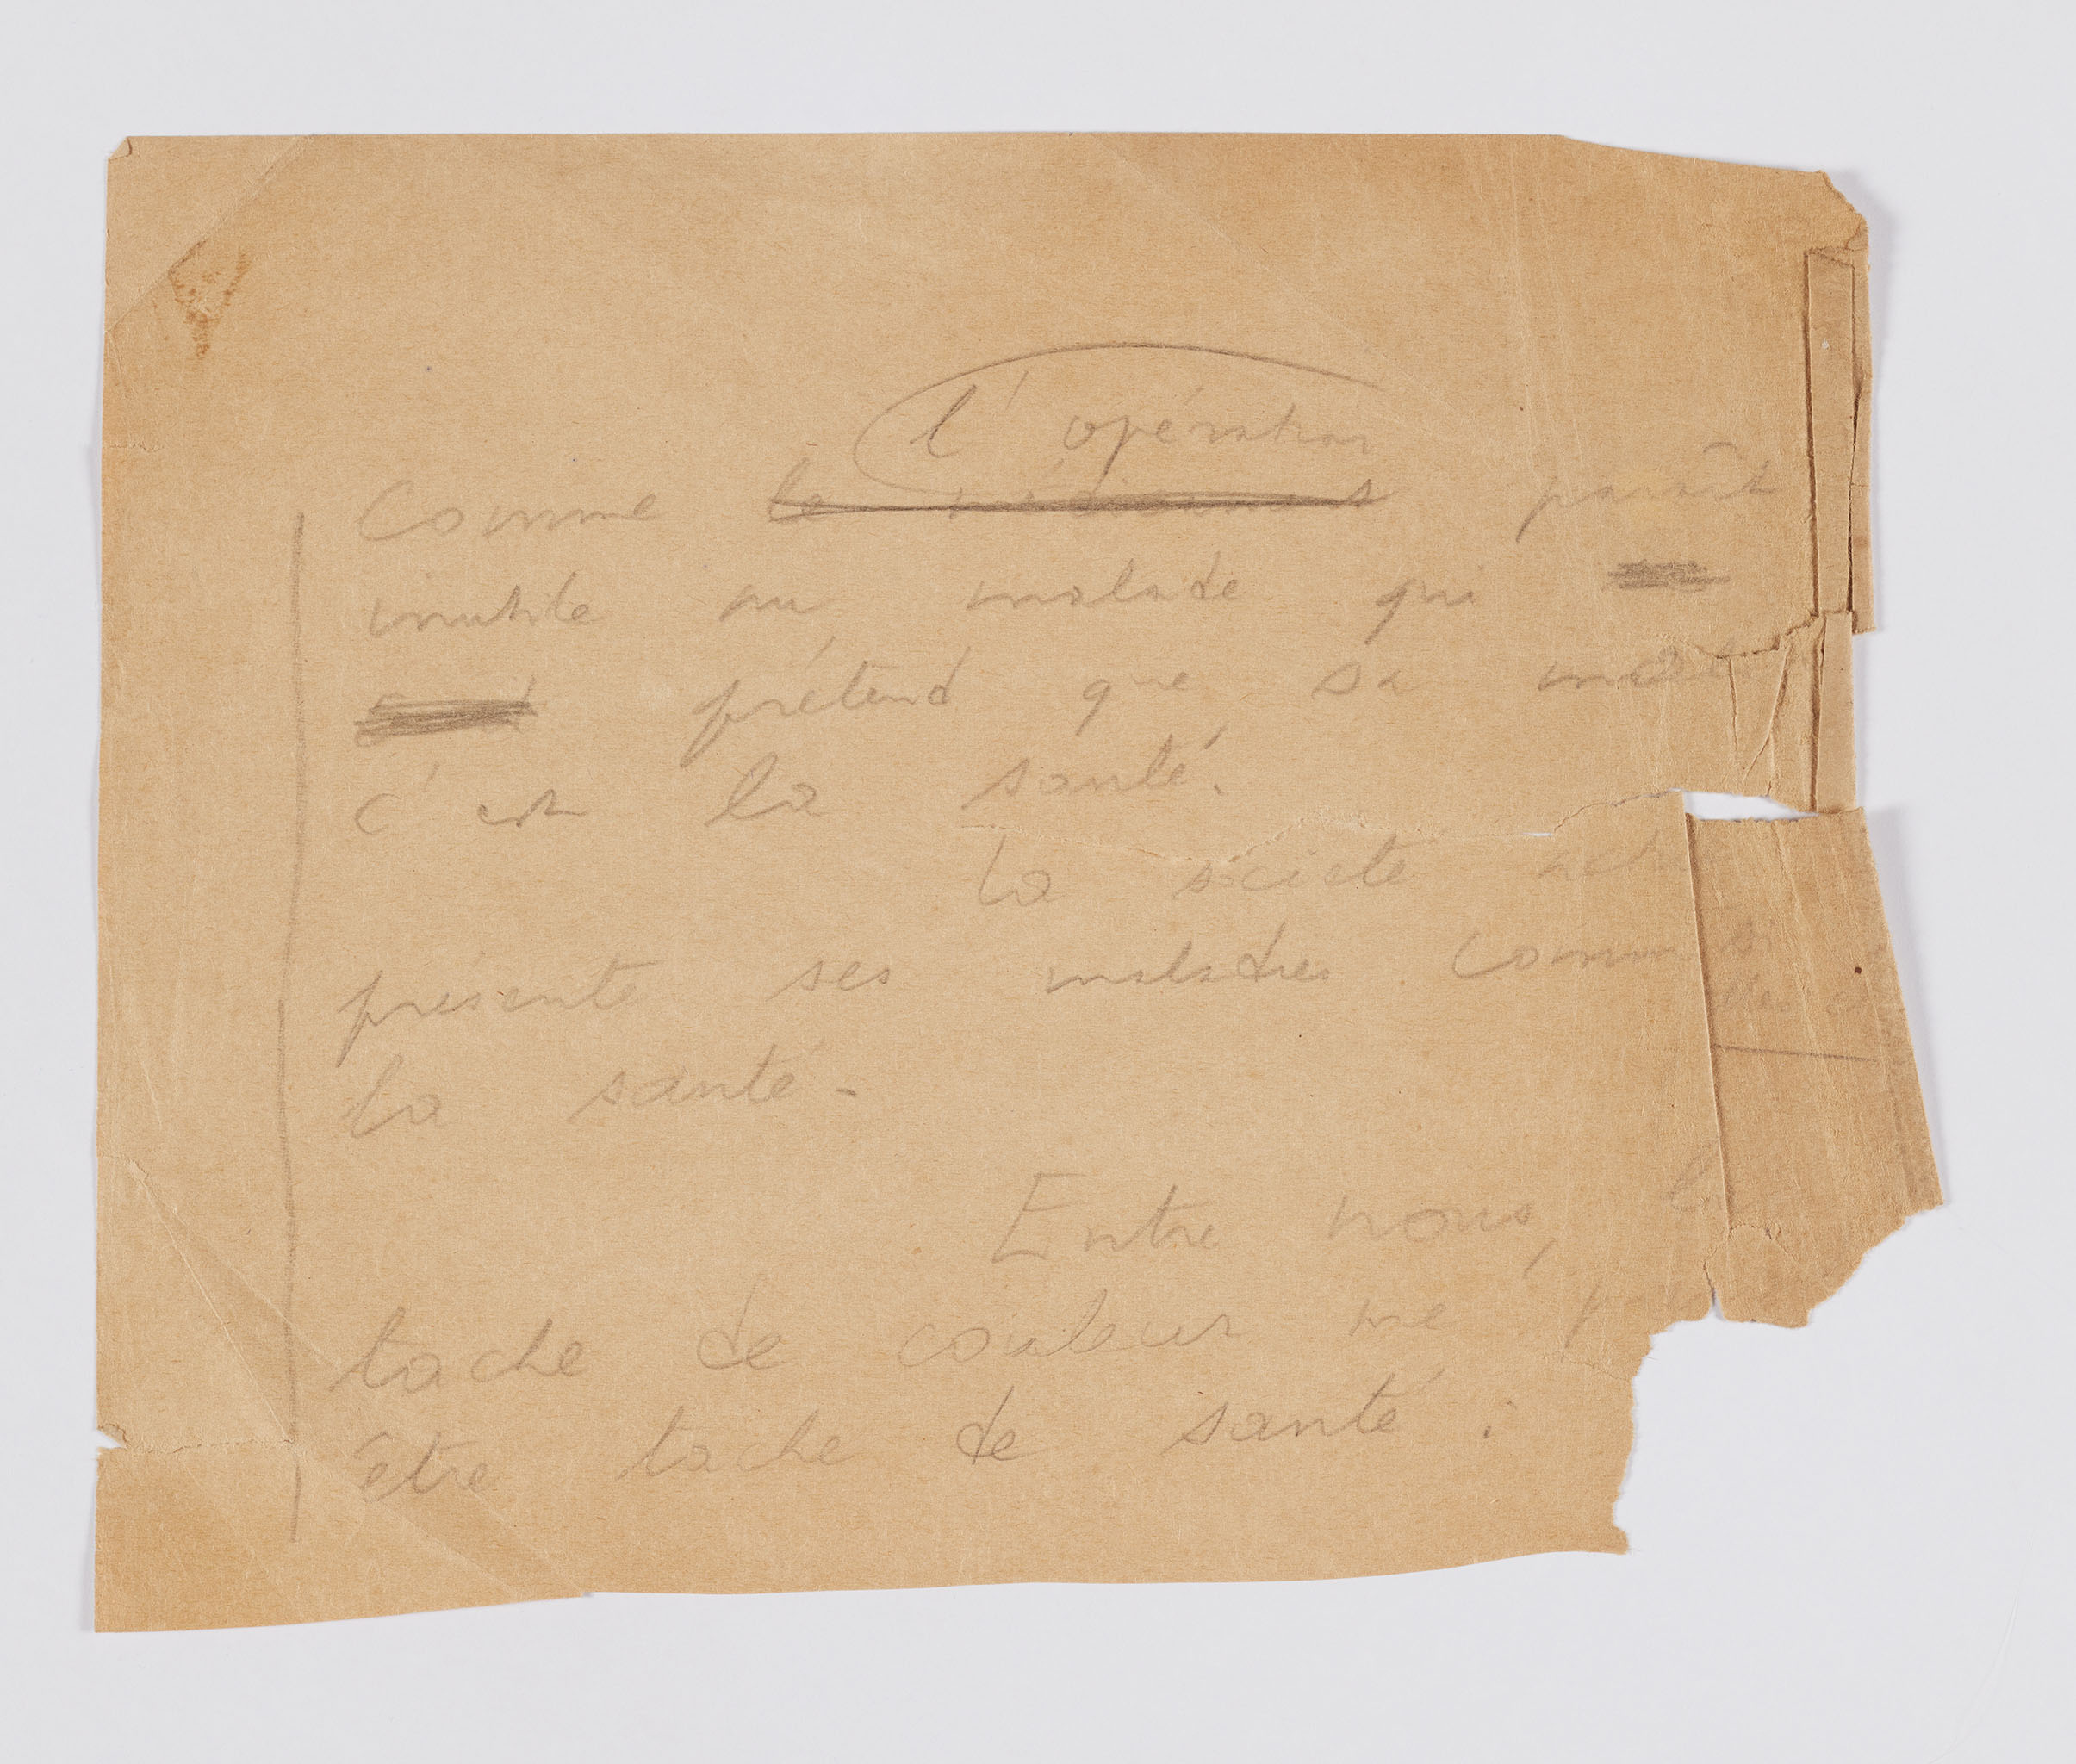 l'opération
Comme le médicament paraît
inutile au malade qui
prétend que sa mal
c'est la santé.
La société act
présente ses maladies comm
la santé.
Entre nous, l
tache de couleur me p
être tache de santé.